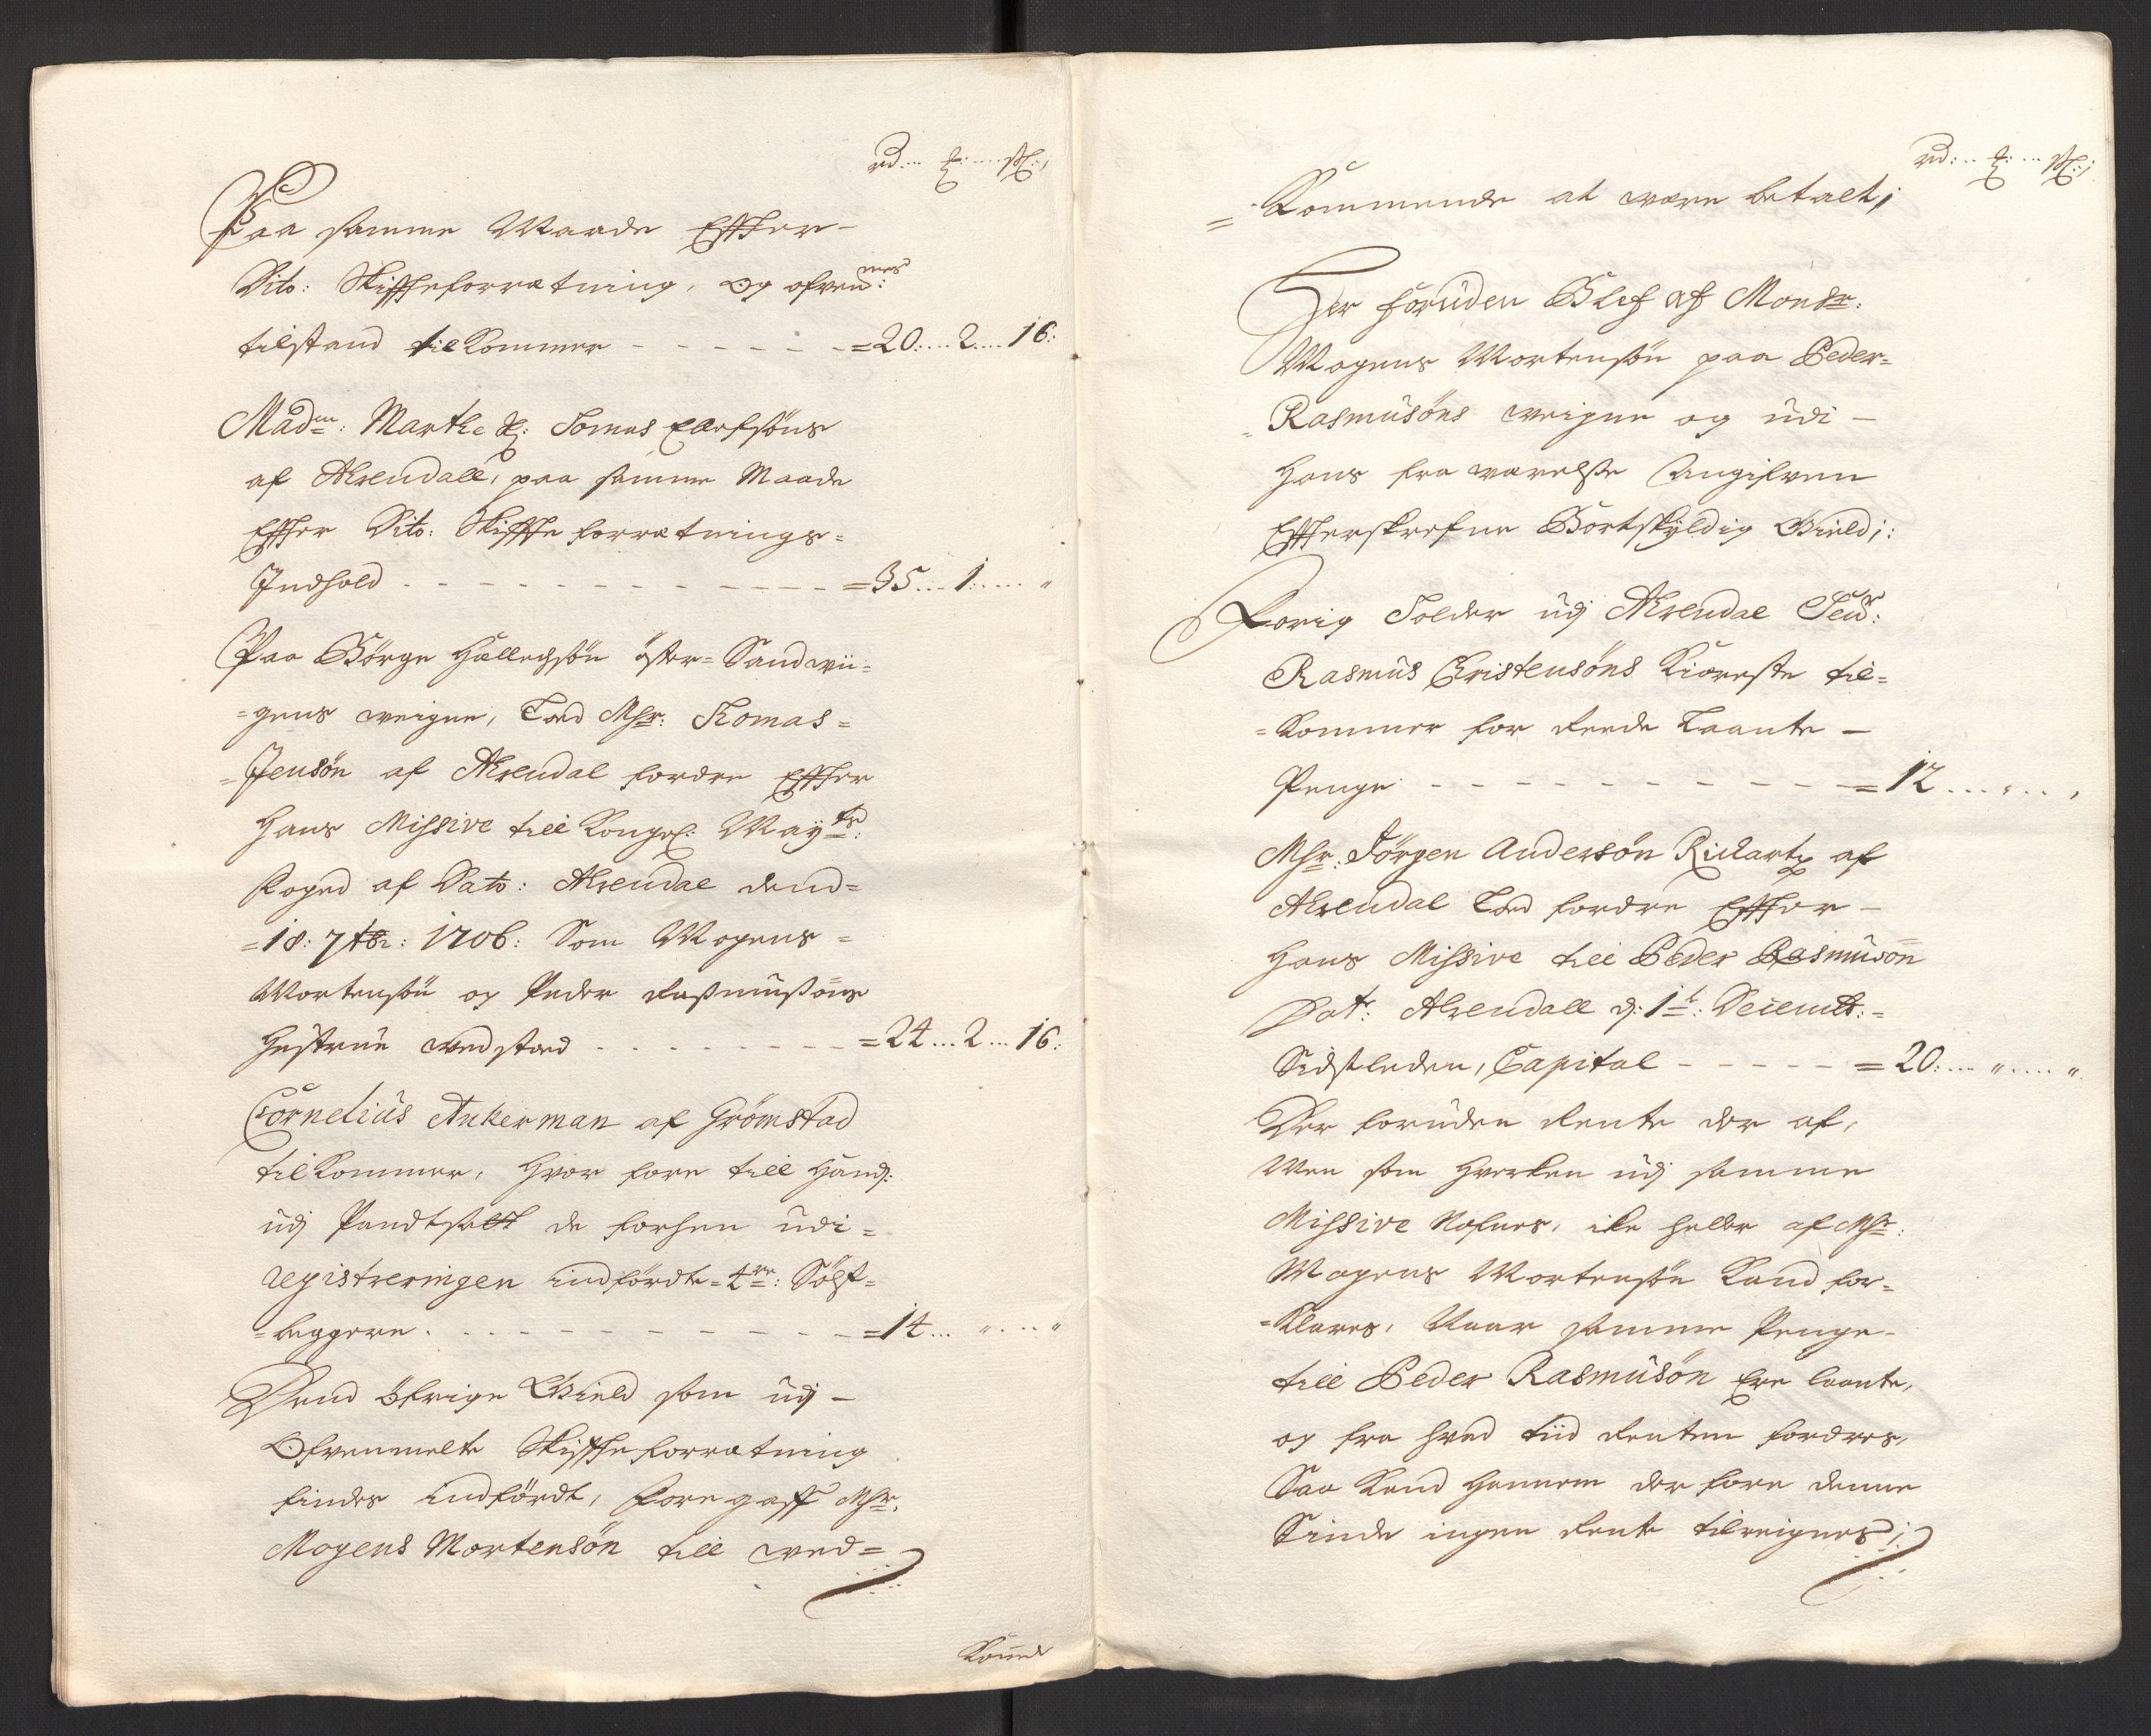 rd: ... ... sk:
Paa samme Maade Effter-
Dito: Skifteforretning, og ofven:
tilstand tilkommer - - - - - - =20:...2...16:
Madm: Marthe Tomas Ellefsöns
af Ahrendall, paa samme Maade
Effter Dito: Skiffteforretnings=
Indhold - - - - - - - - =35...1:.... "
Paa Börge Hallechsön öster=Sandwii=
=gens weigne, Lod Mhr: Thomas=
=Jensön af Ahrendal fordre Effter
Hans Missive till Kongel: Mayts:
foged af Dato: Ahrendal dend=
=18: 7tbr: 1706: Som Mogens=
Mortensön og Peder Rasmusöns
Hustrue wedstod - - - - - - =24...2...16:
Cornelius Ankerman af Grömstad
tilkommer, hvor fore till Hand:
udj Pandtsatt de forhen udi=
registreringen indfördte=4re: Sölf=
=beggere. - - - - - - - - =14... "... "
Dend öfrige Gield som udj-
Ofvenmelte Skiffteforretning
findes indfördt, foregaff Mhr.
Mogens Mortensön till wed=
Komde
rd: ... ... sk:
=Kommende at were betalt;
Her foruden Blef af Monsr:
Mogens Mortensön paa Peder=
=Rasmusöns weigne og udi-
Hans fra werelsse Angifven
Effterskrefne Bortskyldig Gield;:
Forig Tolder udj Ahrendal Seir:
Rasmus Christensöns Kiereste til=
=kommer for Reede Laante-
Penge - - - - - - - - =12.... "... "
Mhr: Jörgen Andersön Rickartz af
Ahrendal Lod fordre Effter-
Hans Missive till Peder Rasmusön
Dat: Ahrendall d: 1te: Decemb:=
Sidstleden, Capital - - - - - =20:.... ".... "
Der foruden Rente der af,
Men som hverken udj samme
Missive Nefnes, ike heller af Mhr:
Mogens Mortensön Kand for=
=klares, Naar samme Penge-
till Peder Rasmusön Ere laante,
og fra hvad tiid Renten fordres,
Saa Kand Hannem der fore denne
Sinde ingen Rente tilreignes;